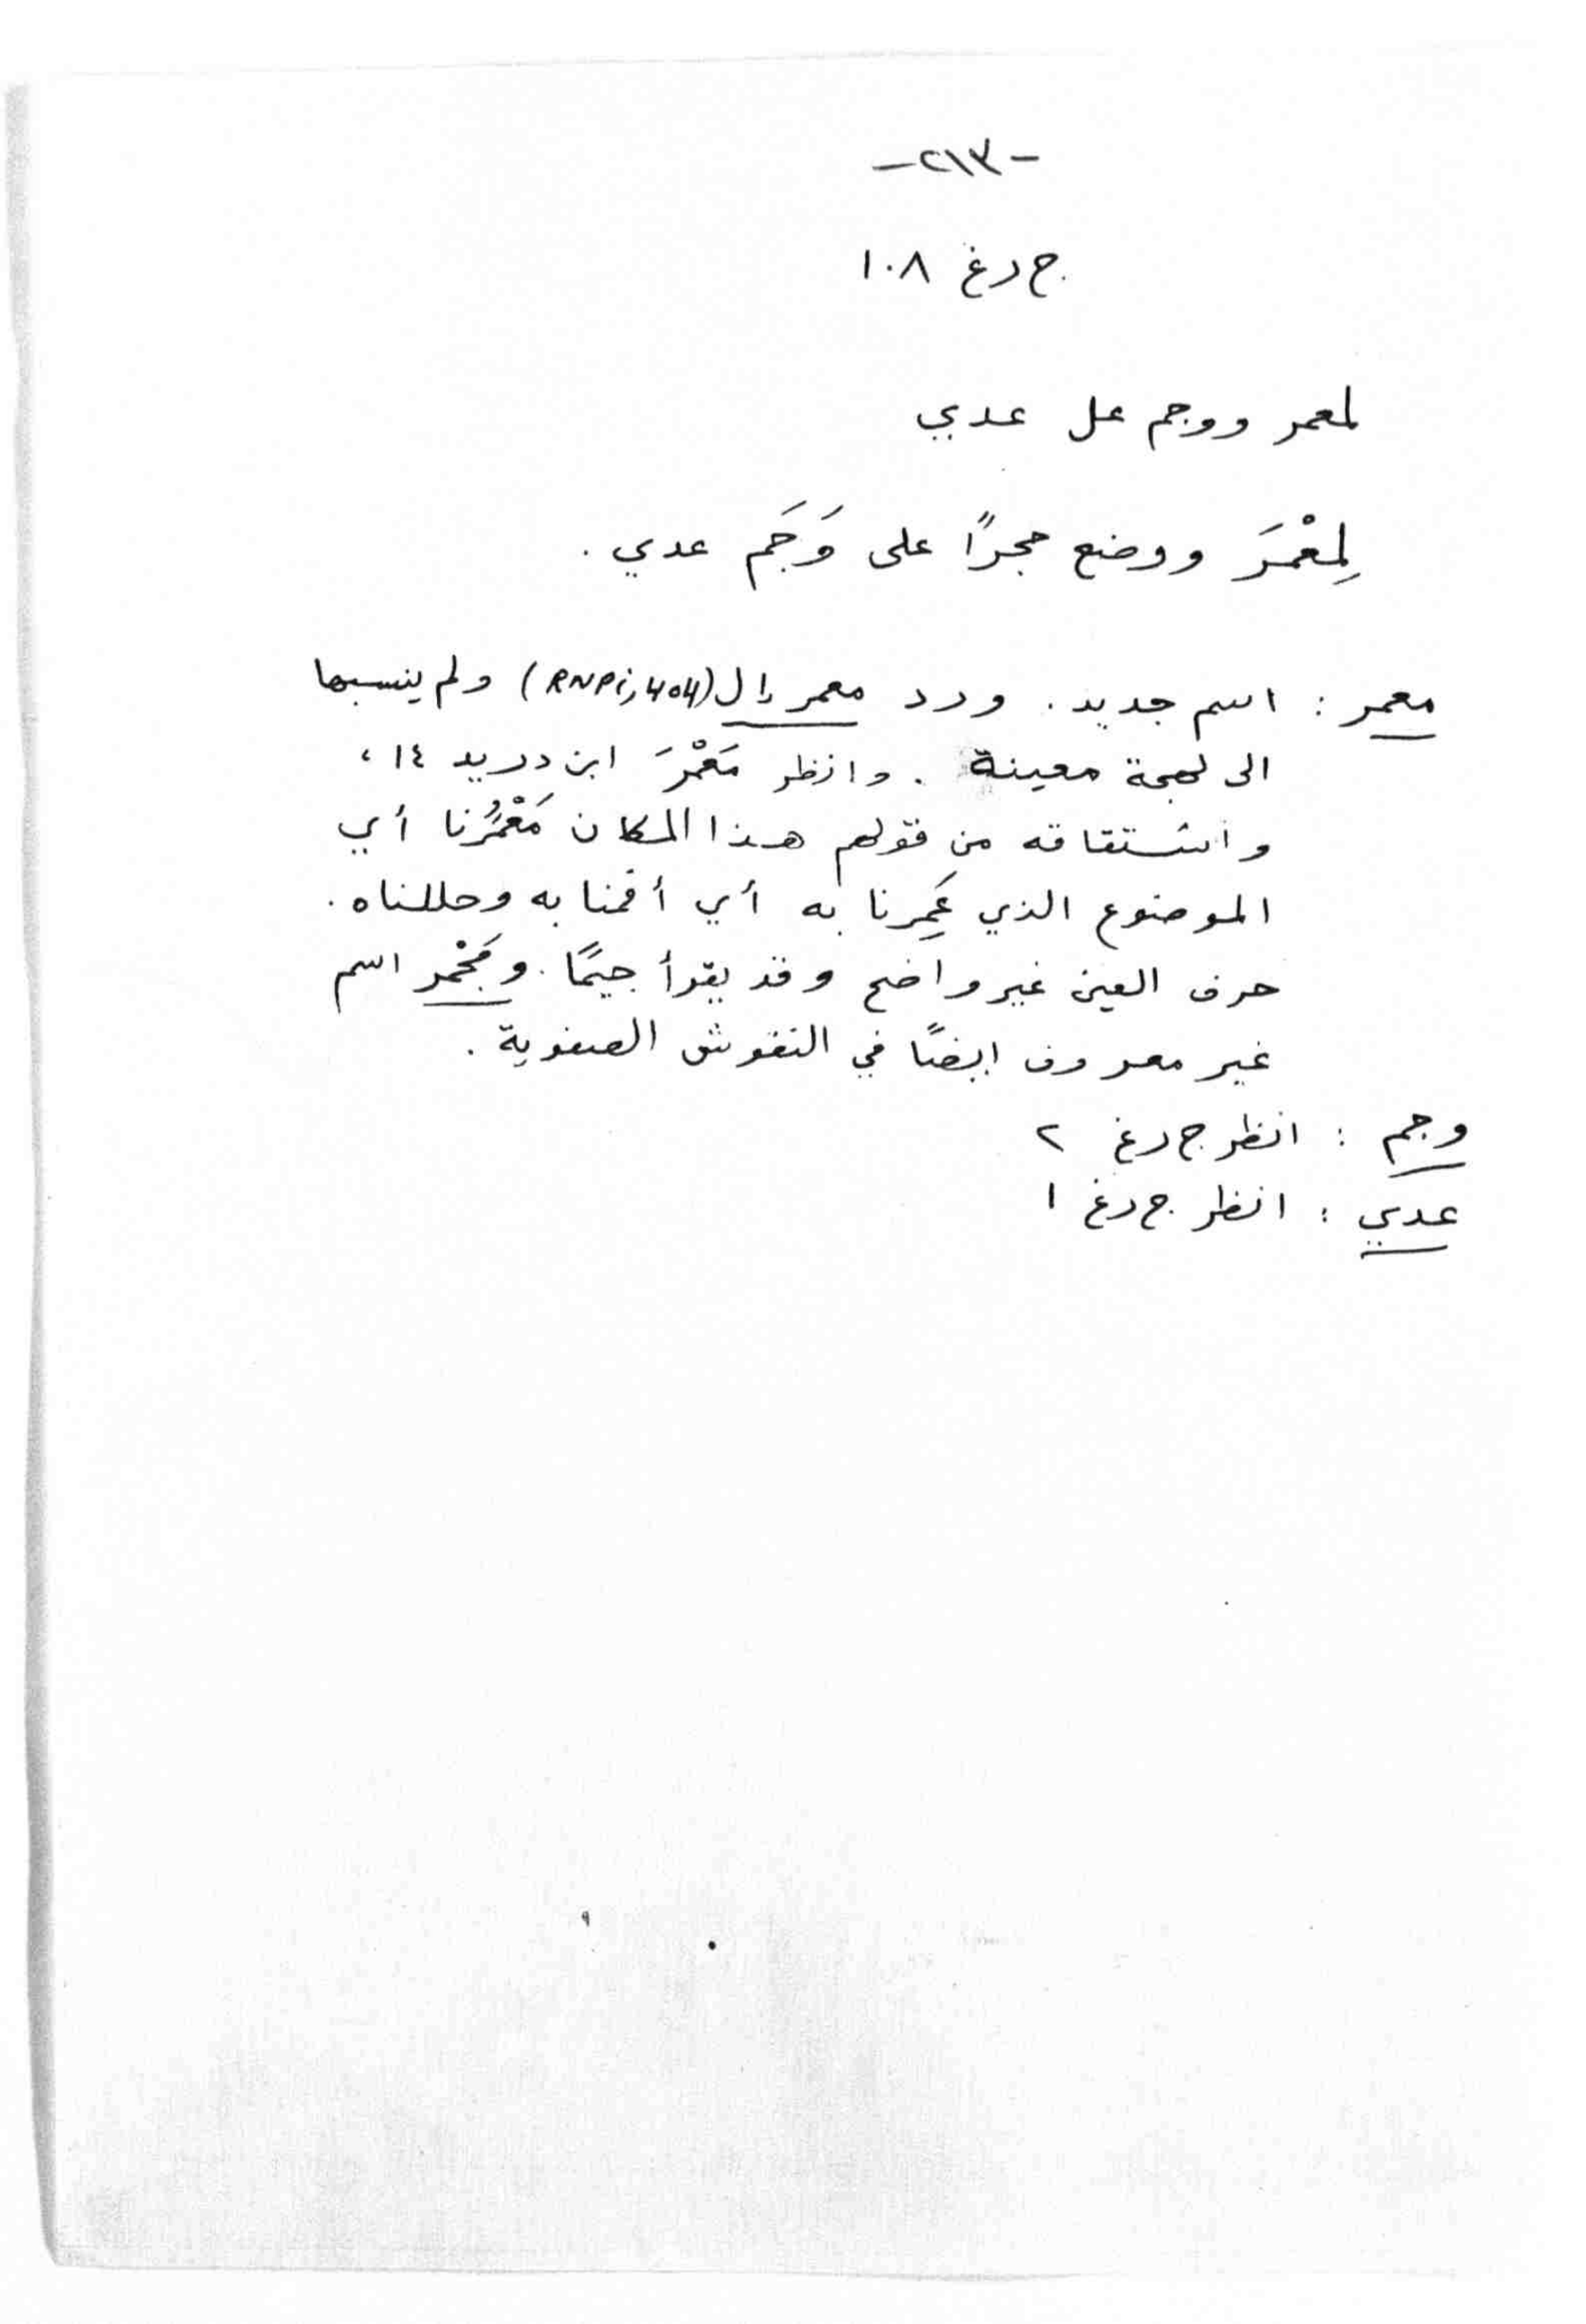 -٢١٣-
ج رغ ١٠٨
لمعمر ووجم عل عدي
لِمعْمَرَ ووضع حجراً على وَجَم عدي .
معمر : اسم جديد . ورد معمر إل (RNP i, 404) ولم ينسبها
الى لهجة معينة . وانظر مَعْمَرَ ابن دريد ١٤ ،
واشتقاقه من قولهم هذا المكان مَعْمَرُنا أي
الموضوع الذي عَمِرنا به أي أقمنا به وحللناه .
حرف العين غير واضح وقد يقرأ جيمًا . ومَجْمر اسم
غير معروف ايضًا في النقوش الصفوية .
وجم : انظر ج رغ ٢
عدي : انظر ج رغ ١